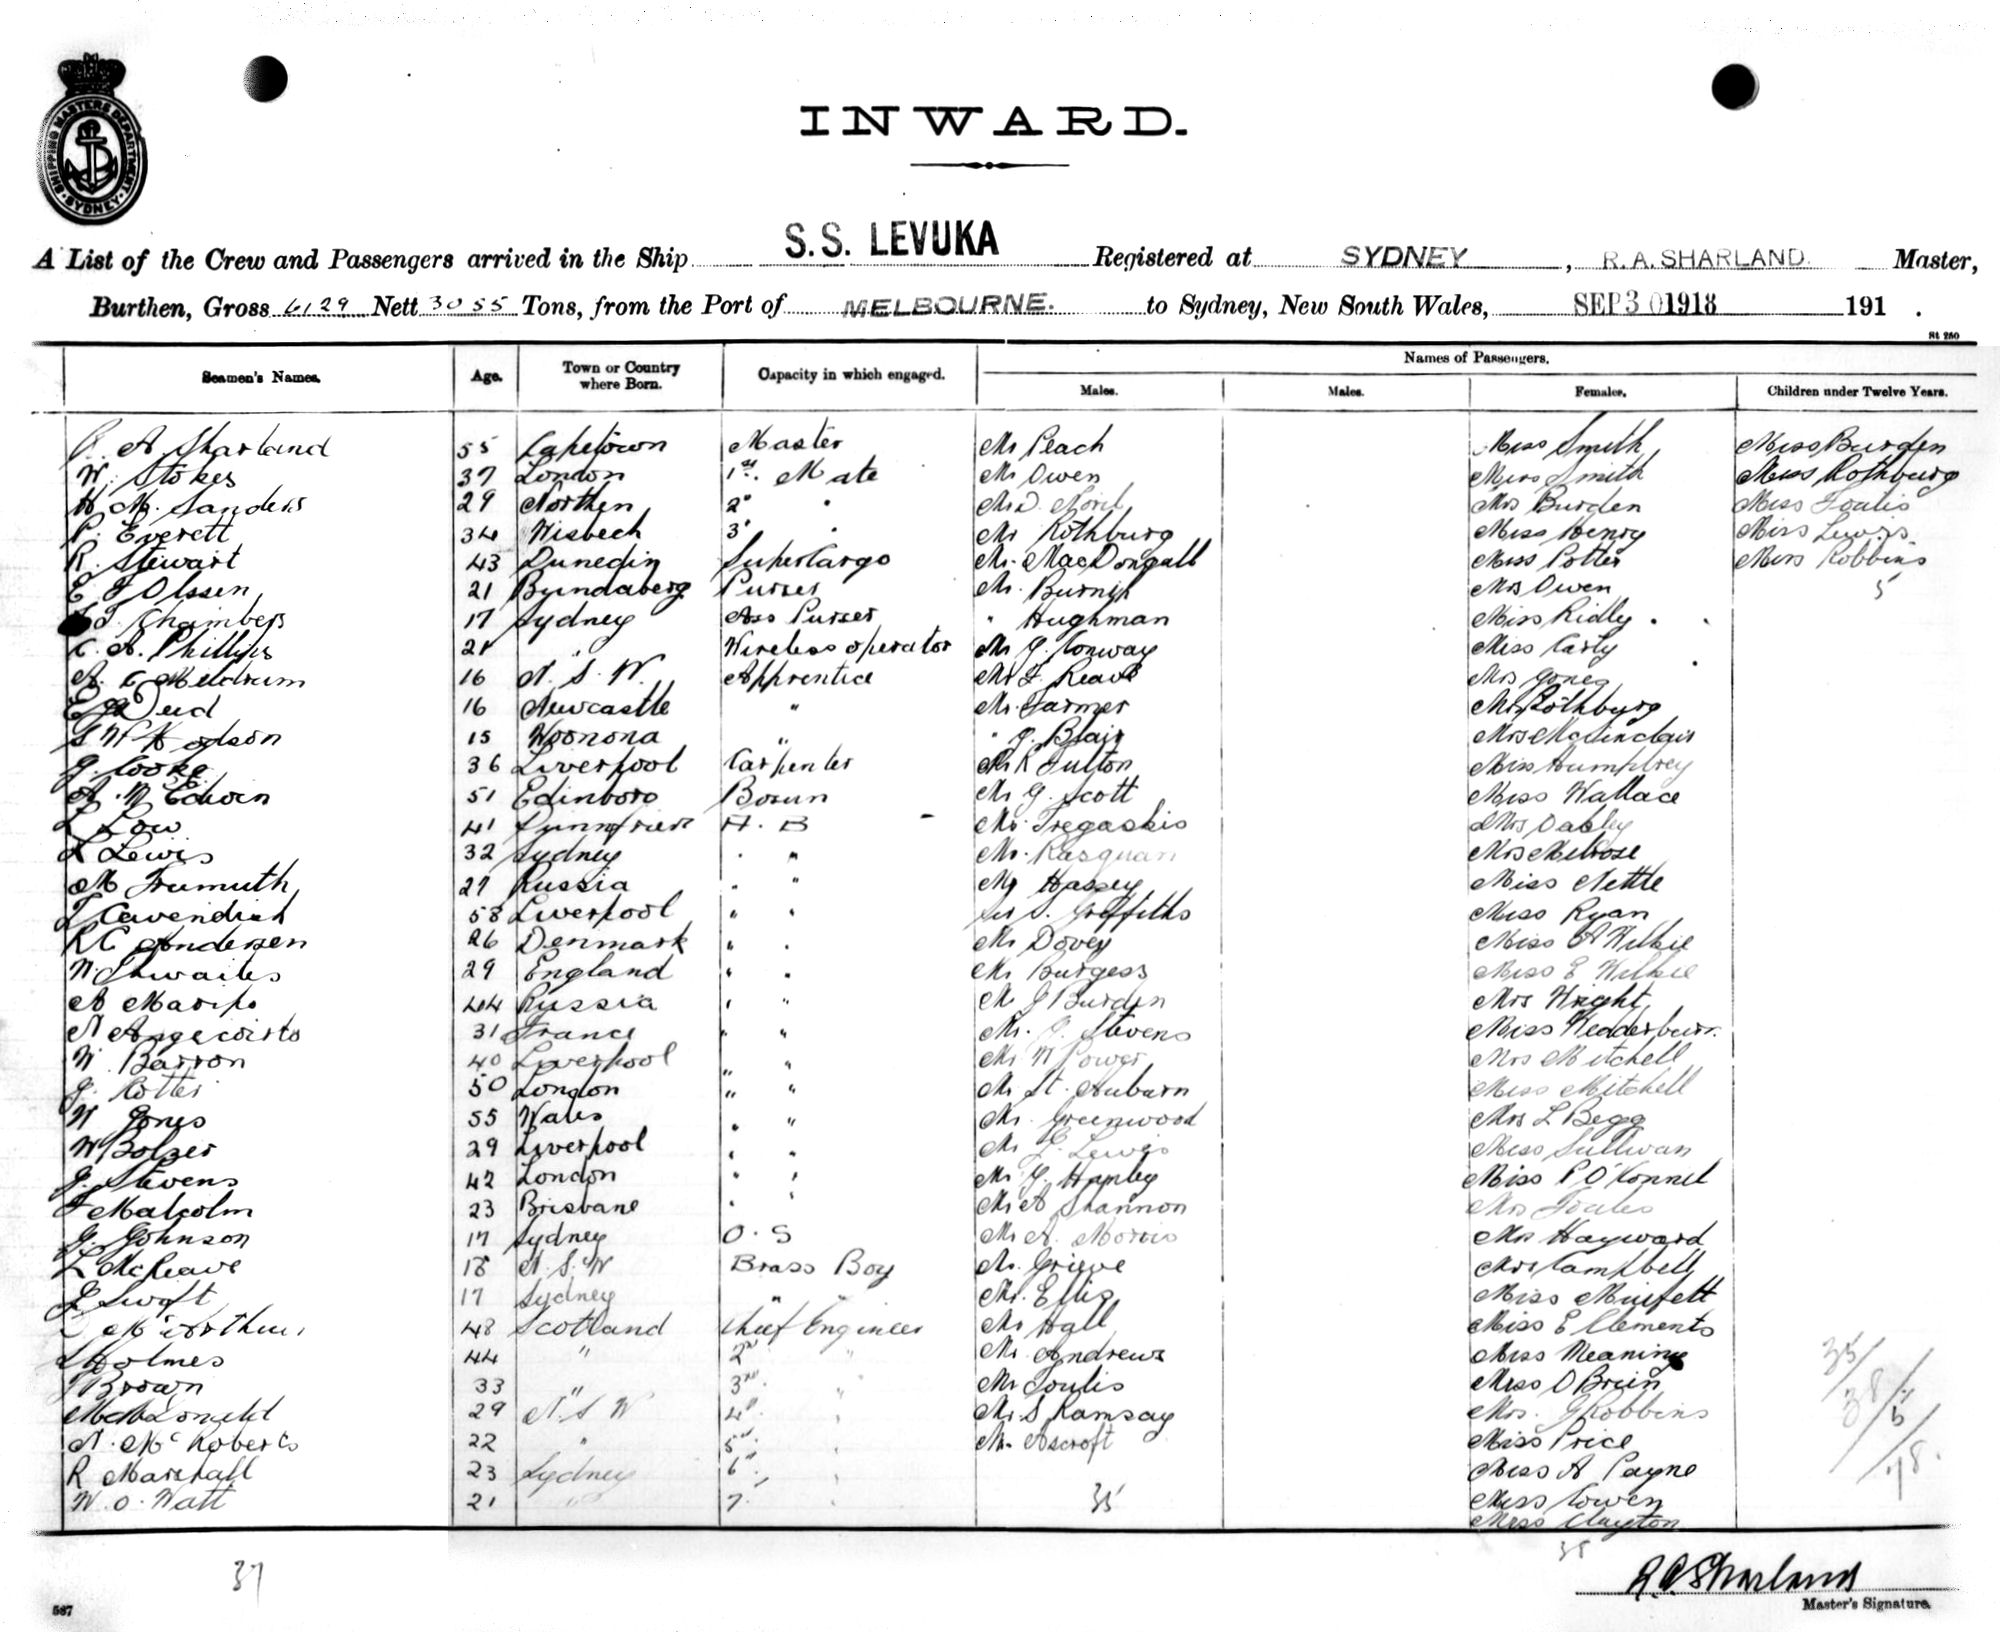 SHIPPING MASTERS DEPARTMENT
SYDNEY
INWARD.
A List of the Crew and Passengers arrived in the Ship S.S. LEVUKA Registered at SYDNEY, R. A. SHARLAND. Master,
Burthen, Gross 6129 Nett 3055 Tons, from the Port of MELBOURNE. to Sydney, New South Wales, SEP 30 1918 191 .
St 250
Names of Passengers.
Seamen's Names. Age. Town or Country where Born. Capacity in which engaged. Males. Males. Females. Children under Twelve Years.
A Sharland 55 Capetown Master Mr Peach Miss Smith Miss Burden
W. Stokes 37 London 1st. Mate Mr Owen Miss Smith Miss Rothburg
H M. Sanders 29 Northen 2" " Mr D. Mrs Burden Miss Foulis
P. Everett 34 Wisbech 3" " Mr Rothburg Miss Henry Miss Lewis
R. Stewart 43 Dunedin Supercargo Mr. MacDongall Miss Potter Miss Robbins
E F Olssen 21 Bundaberg Purser Mr. Mrs Owen 5
Chambers 17 Sydney Ass Purser " Hughman Miss Ridly
C. A. Phillips 21 " Wireless operator Mr G. Conway Miss Carly
A. C Meldrum 16 N. S. W. Apprentice Mr F. Reave Mrs Jones
E 16 Newcastle " Mr. Farmer Mrs Rothburg
S W Hodson 15 Woonona " " J. Blair Mrs McSinclair
J. Cooke 36 Liverpool Carpenter Mr R Fulton Miss Humphrey
A. W. Edwin 51 Edinboro Bosun Mr G. Scott Miss Wallace
L Low 41 Dumfries A. B Mr. Tregaskis Mrs Oabley
L Lewis 32 Sydney " " Mr. Rasquan Mrs Melrose
M Frumuth 27 Russia " " Mr Hassey Miss Nettle
T Cavendish 58 Liverpool " " Mr S. Griffiths Miss Ryan
R C Andersen 26 Denmark " " Mr Dovey Miss A Wilkie
W. Thwaites 29 England " " Mr Burgess Miss E Wilkie
A Maripo 44 Russia " " Mr J Burden Mrs Wright
N 31 France " " Mr. J. Stevens Miss Wedderburn
W. Barron 40 Liverpool " " Mr W Power Mrs Mitchell
J. Cotter 50 London " " Mr St. Auburn Miss Mitchell
W Jones 55 Wales " " Mr. Greenwood Mrs L Begg
W Bolger 29 Liverpool " " Mr J. Lewis Miss Sullivan
J. Stevens 42 London " " Mr G. Hanley Miss P O'Connel
F Malcolm 23 Brisbane " " Mr A Shannon Mrs Foules
J. Johnson 17 Sydney O. S Mr A. Morris Mrs Hayward
L McReave 18 N. S. W Brass Boy Mr. Grieve Mrs Campbell
J Swift 17 Sydney " " Mr. Ellis Miss Minfett
48 Scotland Chief Engineer Mr Hall Miss E Clements
Holmes 44 " 2nd " Mr. Andrews Miss Meaning
J Brown 33 " 3rd " Mr Foulis Miss O Brien
McDonald 29 N. S W 4" " Mr. S Ramsay Mrs. J Robbins
N. McRoberts 22 " 5" " Mr. Ascroft Miss Price
R Marshall 23 Sydney 6" " Miss A Payne
W. O. Watt 21 " 7. " 35 Miss Cowen
Miss Clayton
35/38/5/78.
37
38
R A Sharland
Master's Signature.
587